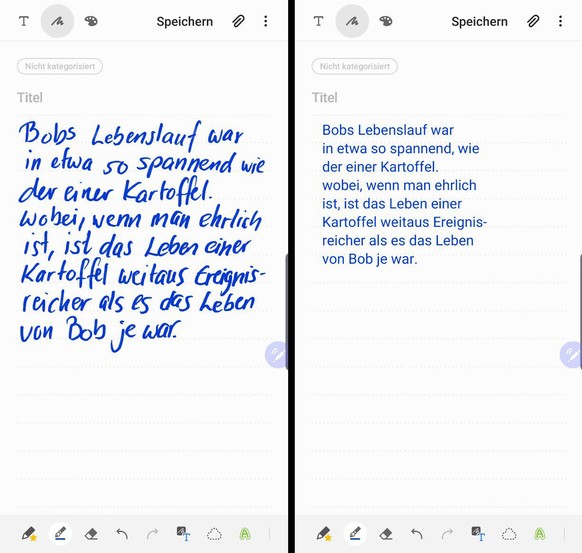 T
Speichern
Nicht kategorisiert
Titel
Bobs Lebenslauf war
in etwa so spannend wie
der einer Kartoffel.
wobei, wenn man ehrlich
ist, ist das Leben einer
Kartoffel weitaus Ereignis-
reicher als es das Leben
von Bob je war.
T
A
T
Speichern
Nicht kategorisiert
Titel
Bobs Lebenslauf war
in etwa so spannend, wie
der einer Kartoffel.
wobei, wenn man ehrlich
ist, ist das Leben einer
Kartoffel weitaus Ereignis-
reicher als es das Leben
von Bob je war.
T
A